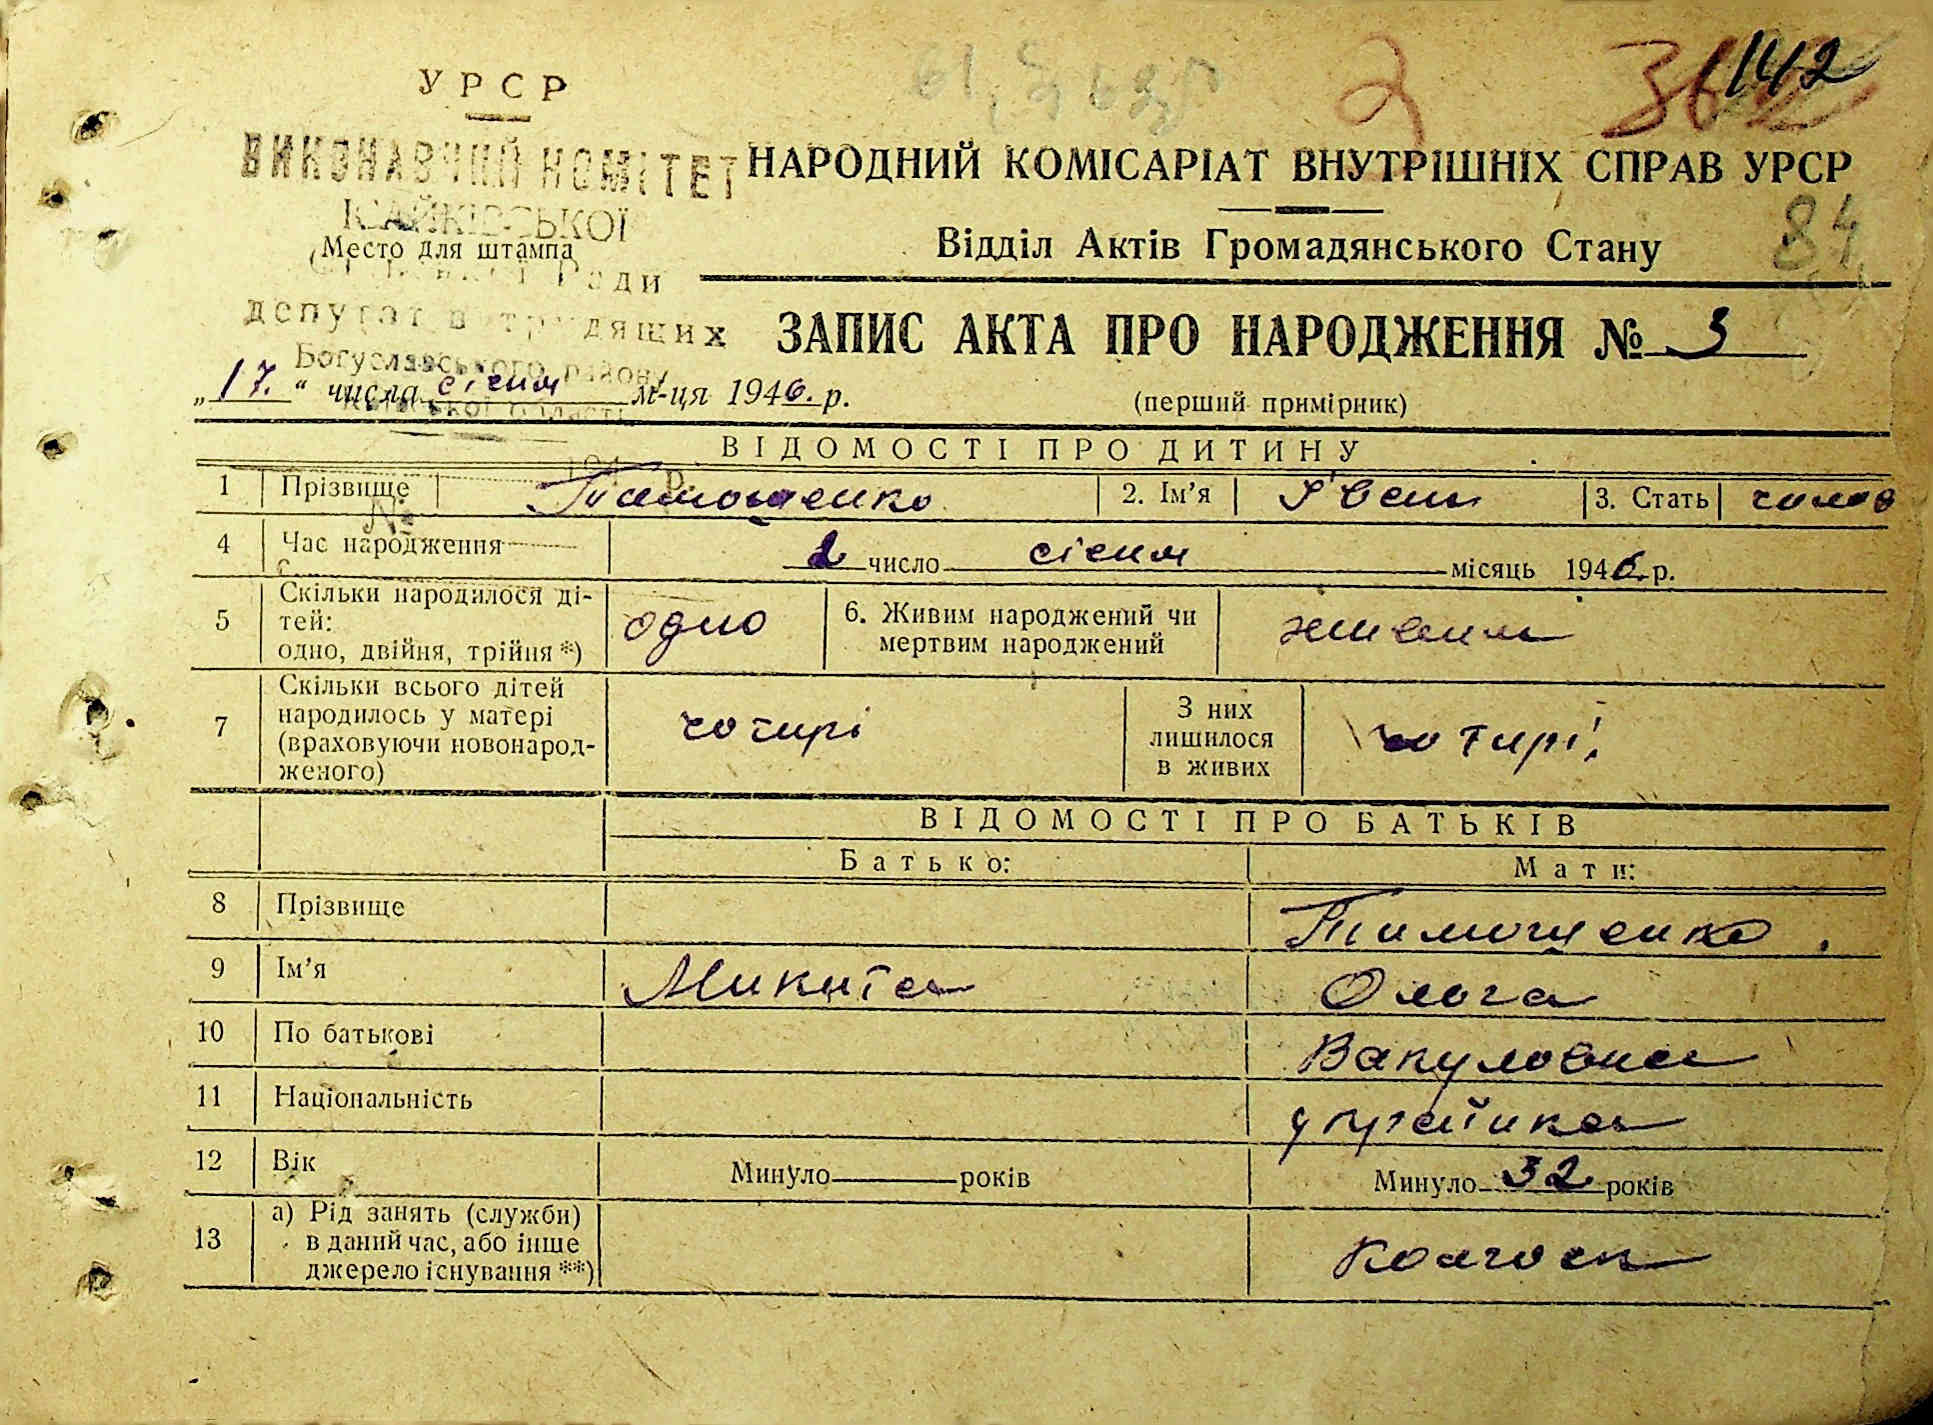 142
УРСР
ВИКОНАВЧИЙ КОМІТЕТ
ІСАЙКІВСЬКОЇ
Место для штампа
Ради
депутатів трудящих
Богуславського району
Київської області
НАРОДНИЙ КОМІСАРІАТ ВНУТРІШНІХ СПРАВ УРСР
84
Відділ Актів Громадянського Стану
ЗАПИС АКТА ПРО НАРОДЖЕННЯ № 3
„17.“ числа січня м-ця 1946. р.
(перший примірник)
ВІДОМОСТІ ПРО ДИТИНУ
1 Прізвище Тимошенко 2. Ім’я 3. Стать чолов
№
4 Час народження 2 число січня місяць 1946. р.
5 Скільки народилося ді-
тей:
одно, двійня, трійня *) одно 6. Живим народжений чи
мертвим народжений живим
7 Скільки всього дітей
народилось у матері
(враховуючи новонарод-
женого) чотирі З них
лишилося
в живих чотирі
ВІДОМОСТІ ПРО БАТЬКІВ
Батько: Мати:
8 Прізвище Тимошенко
9 Ім’я Микита Ольга
10 По батькові Вакуловна
11 Національність українка
12 Вік Минуло років Минуло 32 років
13 а) Рід занять (служби)
в даний час, або інше
джерело існування **)